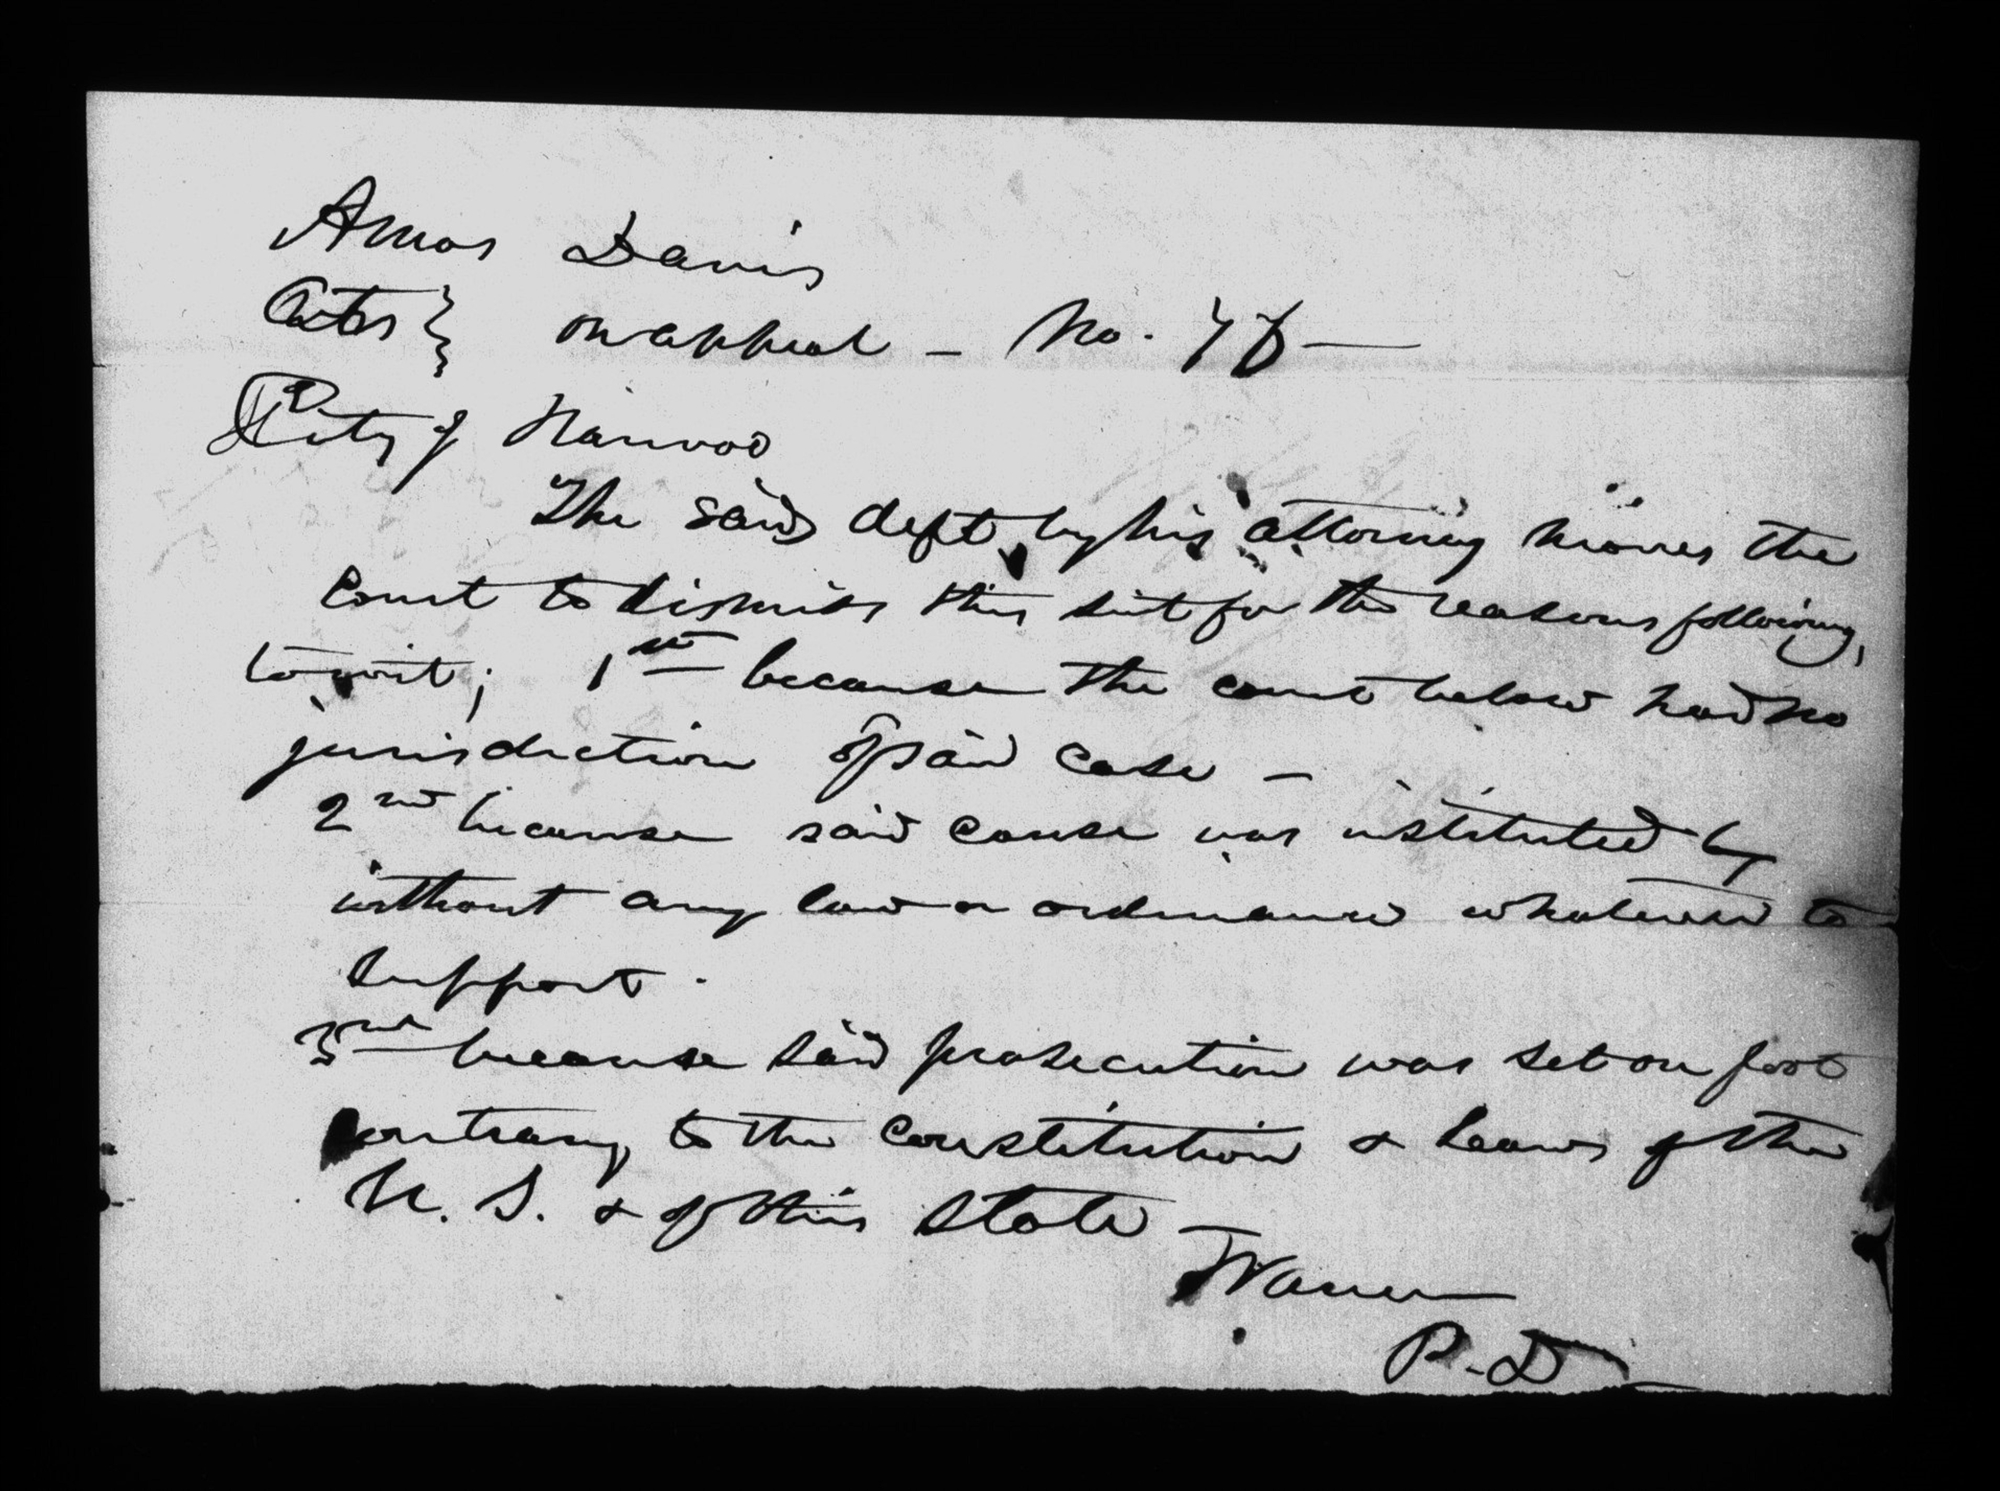 Amos Davis
ats } on appeal — No. 78 —
City of Nauvoo
The said deft, by his attorney moves the
court to dismiss this suit for the reasons following,
to wit; 1st because the court below had no
jurisdiction of said case —
2nd because said cause was instituted by
without any law or ordinance whatever to
support.
3rd because said prosecution was set on foot
contrary to the constitution & laws of the
U. S. & of this State —
Warren
P. D —